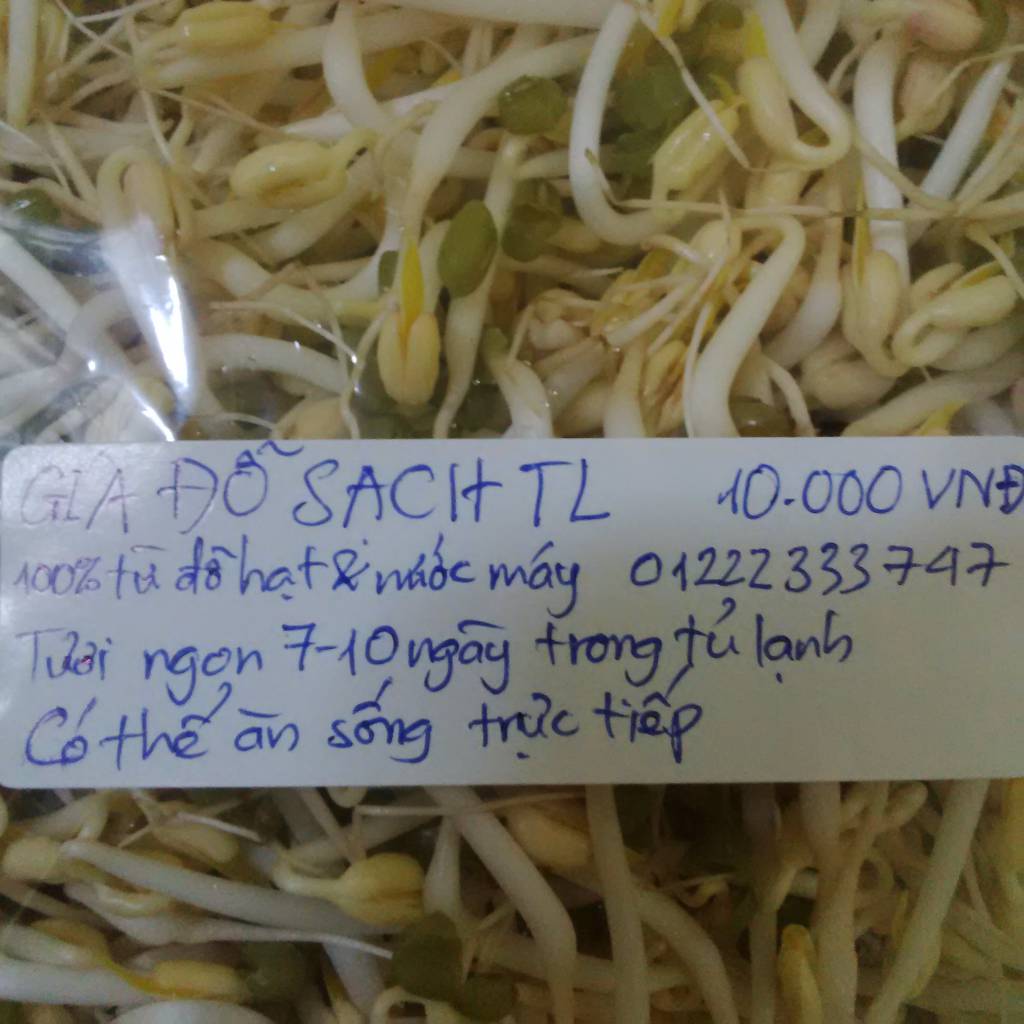 GIÁ ĐỖ SẠCH TL 10.000 VNĐ
100% từ đỗ hạt & nước máy 01222333747
Tươi ngon 7-10 ngày trong tủ lạnh
Có thể ăn sống trực tiếp